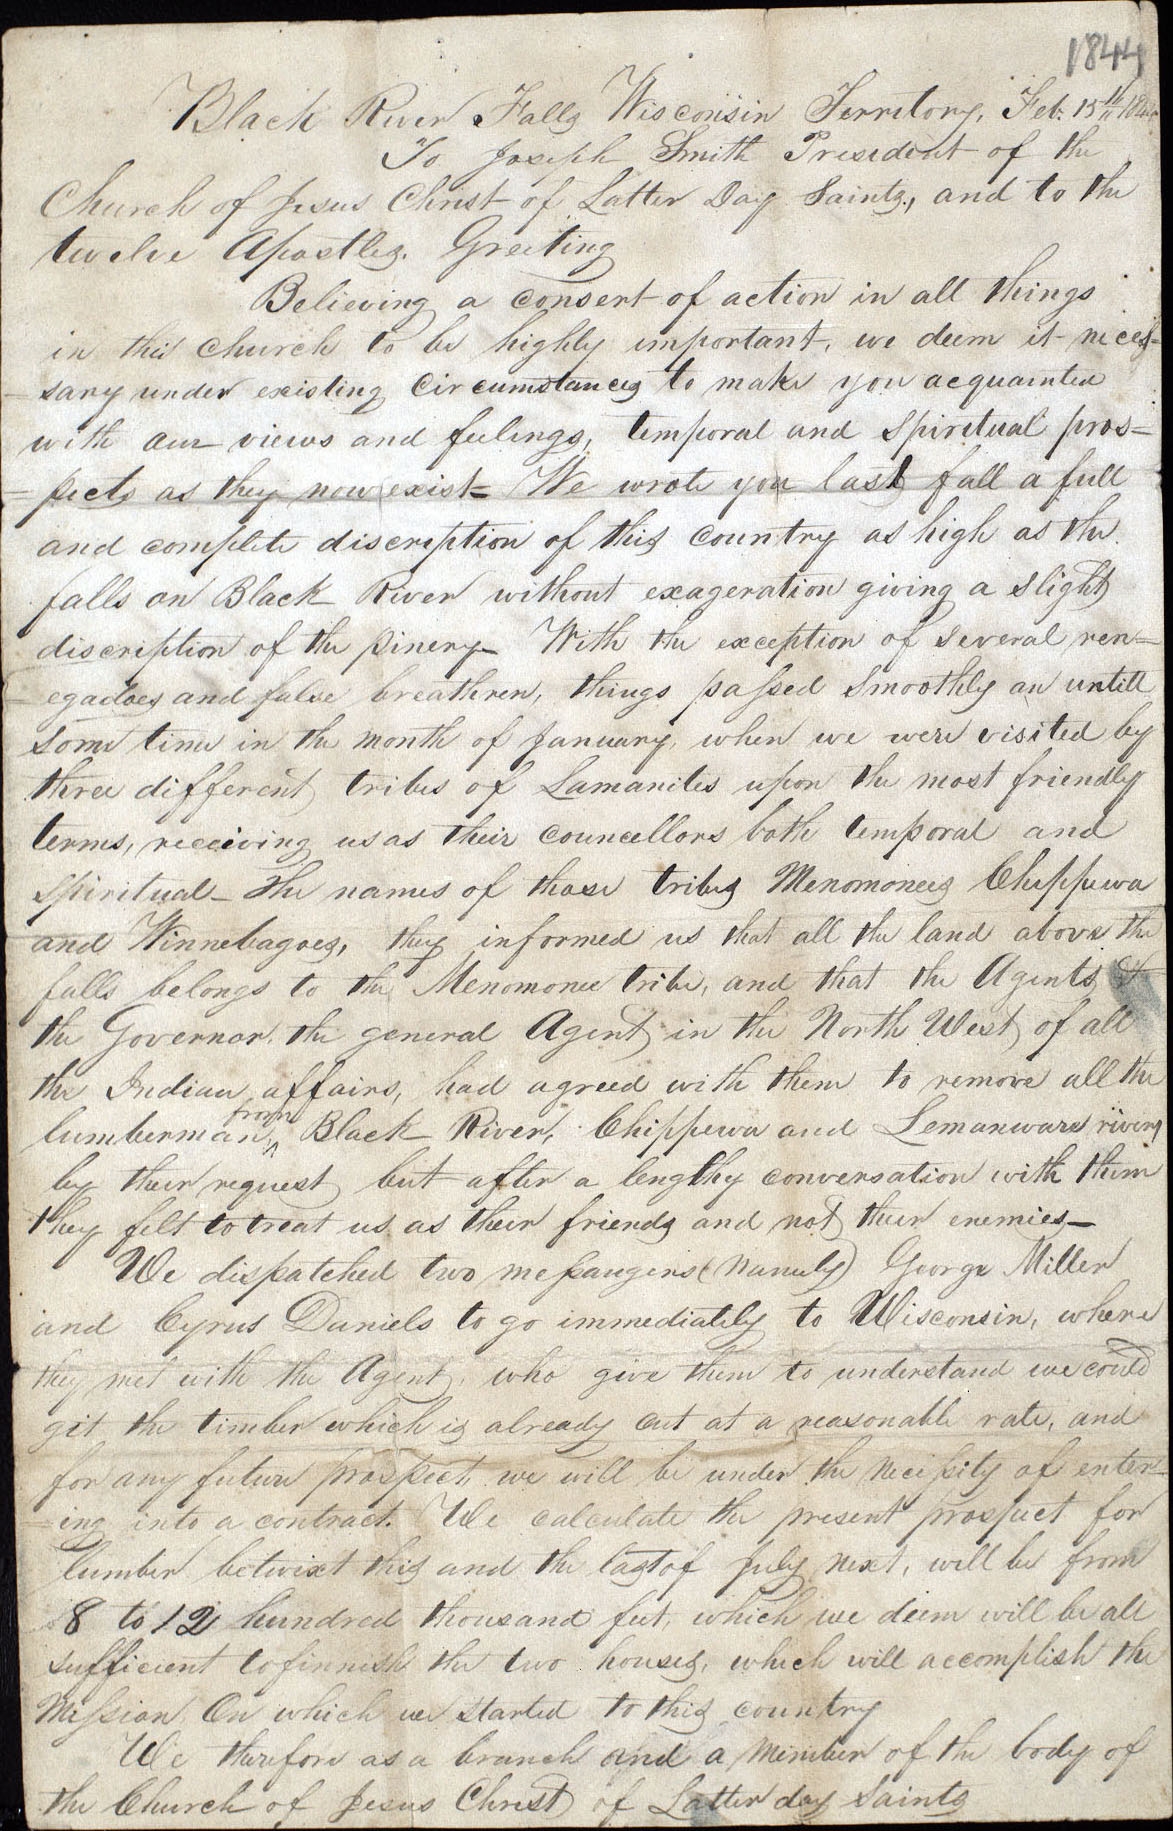 1844
Black River Falls Wisconsin Territory, Feb. 15th 1844
To Joseph Smith President of the
Church of Jesus Christ of Latter Day Saints, and to the
twelve Apostles. Greeting
Believing a consert of action in all things
in this church to be highly important, we deem it neces=
sary under existing Circumstances to make you acquainted
with our views and feelings, temporal and Spiritual pros=
=pects as they now exist= We wrote you last fall a full
and complete discription of this country as high as the
falls on Black River without exageration giving a slight
discription of the pinery_ With the exception of several ren=
egadoes and false breathren, things passed smoothly on untill
some time in the month of January, when we were visited by
three different tribes of Lamanites upon the most friendly
terms, receiving us as their councellors both temporal and
Spiritual_ The names of those tribes Menomonees Chippewa
and Winnebagoes, they informed us that all the land above the
falls belongs to the Menomonee tribe, and that the Agents &
the Governor, the general Agent in the North West of all
the Indian affairs, had agreed with them to remove all the
from
lumberman Black River, Chippewa and Lemanware rivers
by their request but after a lengthy conversation with them
they felt to treat us as their friends and not their enemies_
We dispatched two messangers (namely) George Miller
and Cyrus Daniels to go immediately to Wisconsin, where
they met with the Agent, who give them to understand we could
git the timber which is already cut at a reasonable rate, and
for any future prospect, we will be under the necissity of enter=
=ing into a contract. We calculate the present prospect for
lumber betwixt this and the last of July next, will be from
8 to 12 hundred thousand feet, which we deem will be all
sufficient to finnish the two houses, which will accomplish the
Mission On which we started to this country
We therefore as a branch and a member of the body of
the Church of Jesus Christ of Latter day Saints